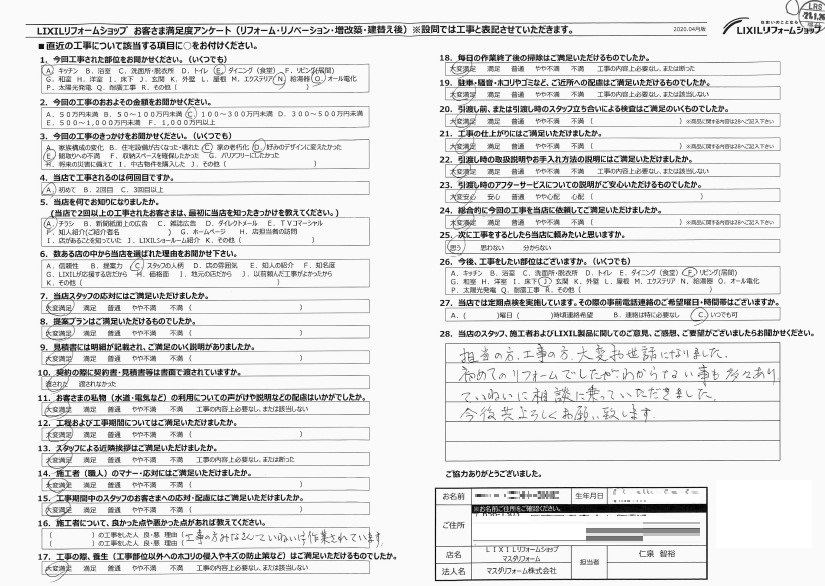 LIXILリフォームショップ お客さま満足度アンケート（リフォーム・リノベーション・増改築・建替え後）※設問では工事と表記させていただきます。
2020.04月版
住まいのことなら
LIXILリフォームショップ
■直近の工事について該当する項目に○をお付けください。
1．今回工事された部位をお聞かせください。（いくつでも）
A．キッチン B．浴室 C．洗面所・脱衣所 D．トイレ E．ダイニング（食堂） F．リビング（居間）
G．和室 H．洋室 I．床下 J．玄関 K．外壁 L．屋根 M．エクステリア N．給湯器 O．オール電化
P．太陽光発電 Q．耐震工事 R．その他（ ）
2．今回の工事のおおよその金額をお聞かせください。
A．50万円未満 B．50～100万円未満 C．100～300万円未満 D．300～500万円未満
E．500～1,000万円未満 F．1,000万円以上
3．今回の工事のきっかけをお聞かせください。（いくつでも）
A．家族構成の変化 B．住宅設備が古くなった・壊れた C．家の老朽化 D．好みのデザインに変えたかった
E．間取りへの不満 F．収納スペースを確保したかった G．バリアフリーにしたかった
H．将来の災害に備えて I．中古物件を購入した J．その他（ ）
4．当店で工事されるのは何回目ですか。
A．初めて B．2回目 C．3回目以上
5．当店を何でお知りになりましたか。
（当店で2回以上の工事されたお客さまは、最初に当店を知ったきっかけを教えてください。）
A．チラシ B．新聞紙面上の広告 C．雑誌広告 D．ダイレクトメール E．TVコマーシャル
F．知人紹介(ご紹介者名 ) G．ホームページ H．店担当者の訪問
I．店があることを知っていた J．LIXILショールーム紹介 K．その他（ ）
6．数ある店の中から当店を選ばれた理由をお聞かせ下さい。
A．信頼性 B．提案力 C．スタッフの人柄 D．店の雰囲気 E．知人の紹介 F．知名度
G．LIXILが応援する店だから H．価格面 I．地元の店だから J．以前頼んだ工事がよかったから
K．その他（ ）
7．当店スタッフの応対にはご満足いただけましたか。
大変満足 満足 普通 やや不満 不満（ ）
8．提案プランはご満足いただけるものでしたか。
大変満足 満足 普通 やや不満 不満（ ）
9．見積書には明細が記載され、ご満足のいく説明がありましたか。
大変満足 満足 普通 やや不満 不満（ ）
10．契約の際に契約書・見積書等は書面で渡されていますか。
渡された 渡されなかった
11．お客さまの私物（水道・電気など）の利用についての声がけや説明などの配慮はいかがでしたか。
大変満足 満足 普通 やや不満 不満 工事の内容上必要なし、または該当しない
12．工程および工事期間についてはご満足いただけましたか。
大変満足 満足 普通 やや不満 不満（ ）
13．スタッフによる近隣挨拶はご満足いただけましたか。
大変満足 満足 普通 やや不満 不満 工事の内容上必要なし、または断った
14．施工者（職人）のマナー・応対にはご満足いただけましたか。
大変満足 満足 普通 やや不満 不満（ ）
15．工事期間中のスタッフのお客さまへの応対・配慮にはご満足いただけましたか。
大変満足 満足 普通 やや不満 不満（ ）
16．施工者について、良かった点や悪かった点があれば教えてください。
（ ）の工事をした人 良・悪 理由（工事の方みなさんていねいに作業されています
（ ）の工事をした人 良・悪 理由（
17．工事の際、養生（工事部位以外へのホコリの侵入やキズの防止策など）はご満足いただけるものでしたか。
大変満足 満足 普通 やや不満 不満 工事の内容上必要なし、または該当しない
18．毎日の作業終了後の掃除はご満足いただけるものでしたか。
大変満足 満足 普通 やや不満 不満 工事の内容上必要なし、または断った
19．駐車・騒音・ホコリやゴミなど、ご近所への配慮はご満足いただけるものでしたか。
大変満足 満足 普通 やや不満 不満 工事の内容上必要なし、または該当しない
20．引渡し前、または引渡し時のスタッフ立ち合いによる検査はご満足のいくものでしたか。
大変満足 満足 普通 やや不満 不満（ ）※商品に関する内容は28へご記入下さい
21．工事の仕上がりにはご満足いただけましたか。
大変満足 満足 普通 やや不満 不満（ ）※商品に関する内容は28へご記入下さい
22．引渡し時の取扱説明やお手入れ方法の説明にはご満足いただけましたか。
大変満足 満足 普通 やや不満 不満 工事の内容上必要なし、または該当しない
23．引渡し時のアフターサービスについての説明がご安心いただけるものでしたか。
大変安心 安心 普通 やや心配 心配（ ）
24．総合的に今回の工事を当店に依頼してご満足いただけましたか。
大変満足 満足 普通 やや不満 不満（ ）※商品に関する内容は28へご記入下さい
25．次に工事をするとしたら当店に頼みたいと思いますか。
思う 思わない 分からない
26．今後、工事をしたい部位はございますか。（いくつでも）
A．キッチン B．浴室 C．洗面所・脱衣所 D．トイレ E．ダイニング（食堂） F．リビング（居間）
G．和室 H．洋室 I．床下 J．玄関 K．外壁 L．屋根 M．エクステリア N．給湯器 O．オール電化
P．太陽光発電 Q．耐震工事 R．その他（ ）
27．当店では定期点検を実施しています。その際の事前電話連絡のご希望曜日・時間帯はございますか。
A．（ ）曜日（ ）時頃連絡希望 B．連絡は特に必要なし C．いつでも可
28．当店のスタッフ、施工者およびLIXIL製品に関してのご意見、ご感想、ご要望がございましたらお聞かせください。
担当の方、工事の方、大変お世話になりました。
初めてのリフォームでしたがわからない事も多々あり
ていねいに相談に乗っていただきました。
今後共よろしくお願い致します。
ご協力ありがとうございました。
お名前
生年月日
※お名前ご住所をご確認ください。
ご住所
店名
LIXILリフォームショップ
マスダリフォーム
担当者
仁泉 智裕
法人名
マスダリフォーム株式会社